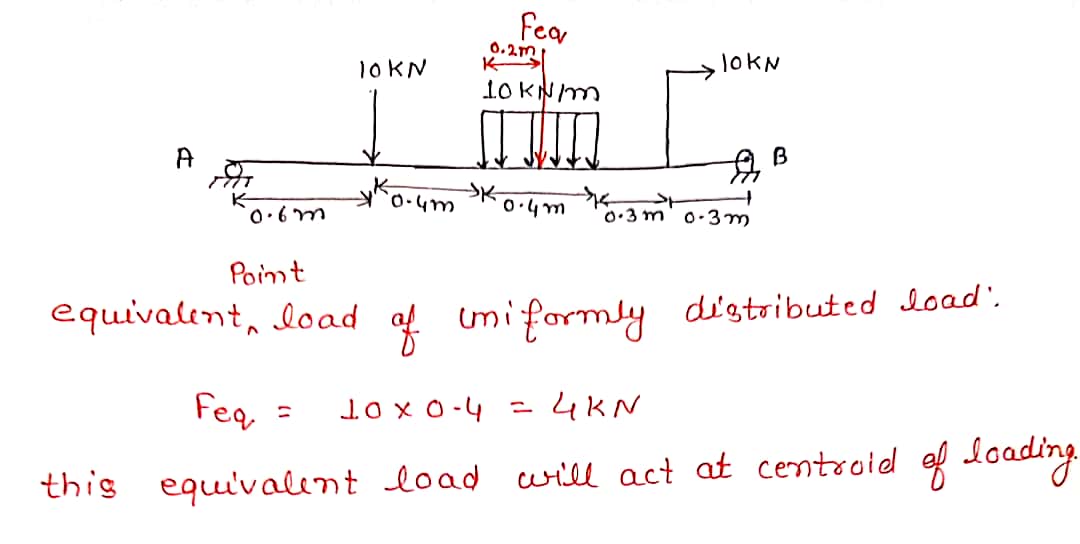 Feq
0.2m
10KN
10KN
10 KN/m
A
B
0.6m
0.4m
0.4m
0.3m
0.3m
Point
equivalent ‸ load of uniformly distributed load:
Feq = 10 x 0.4 = 4KN
this equivalent load will act at centroid of loading.